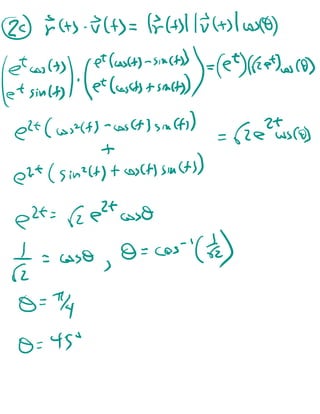 2c) r⃗(t) · v⃗(t) = |r⃗(t)| |v⃗(t)| cos(θ)
(e^t cos(t) / e^t sin(t)) · (e^t(cos(t) - sin(t)) / e^t(cos(t) + sin(t))) = (e^t)(√2e^t)cos(θ)
e^2t (cos²(t) - cos(t) sin(t))
+ = √2e^2t cos(θ)
e^2t (sin²(t) + cos(t) sin(t))
e^2t = √2 e^2t cosθ
1/√2 = cosθ, θ = cos⁻¹(1/√2)
θ = π/4
θ = 45°